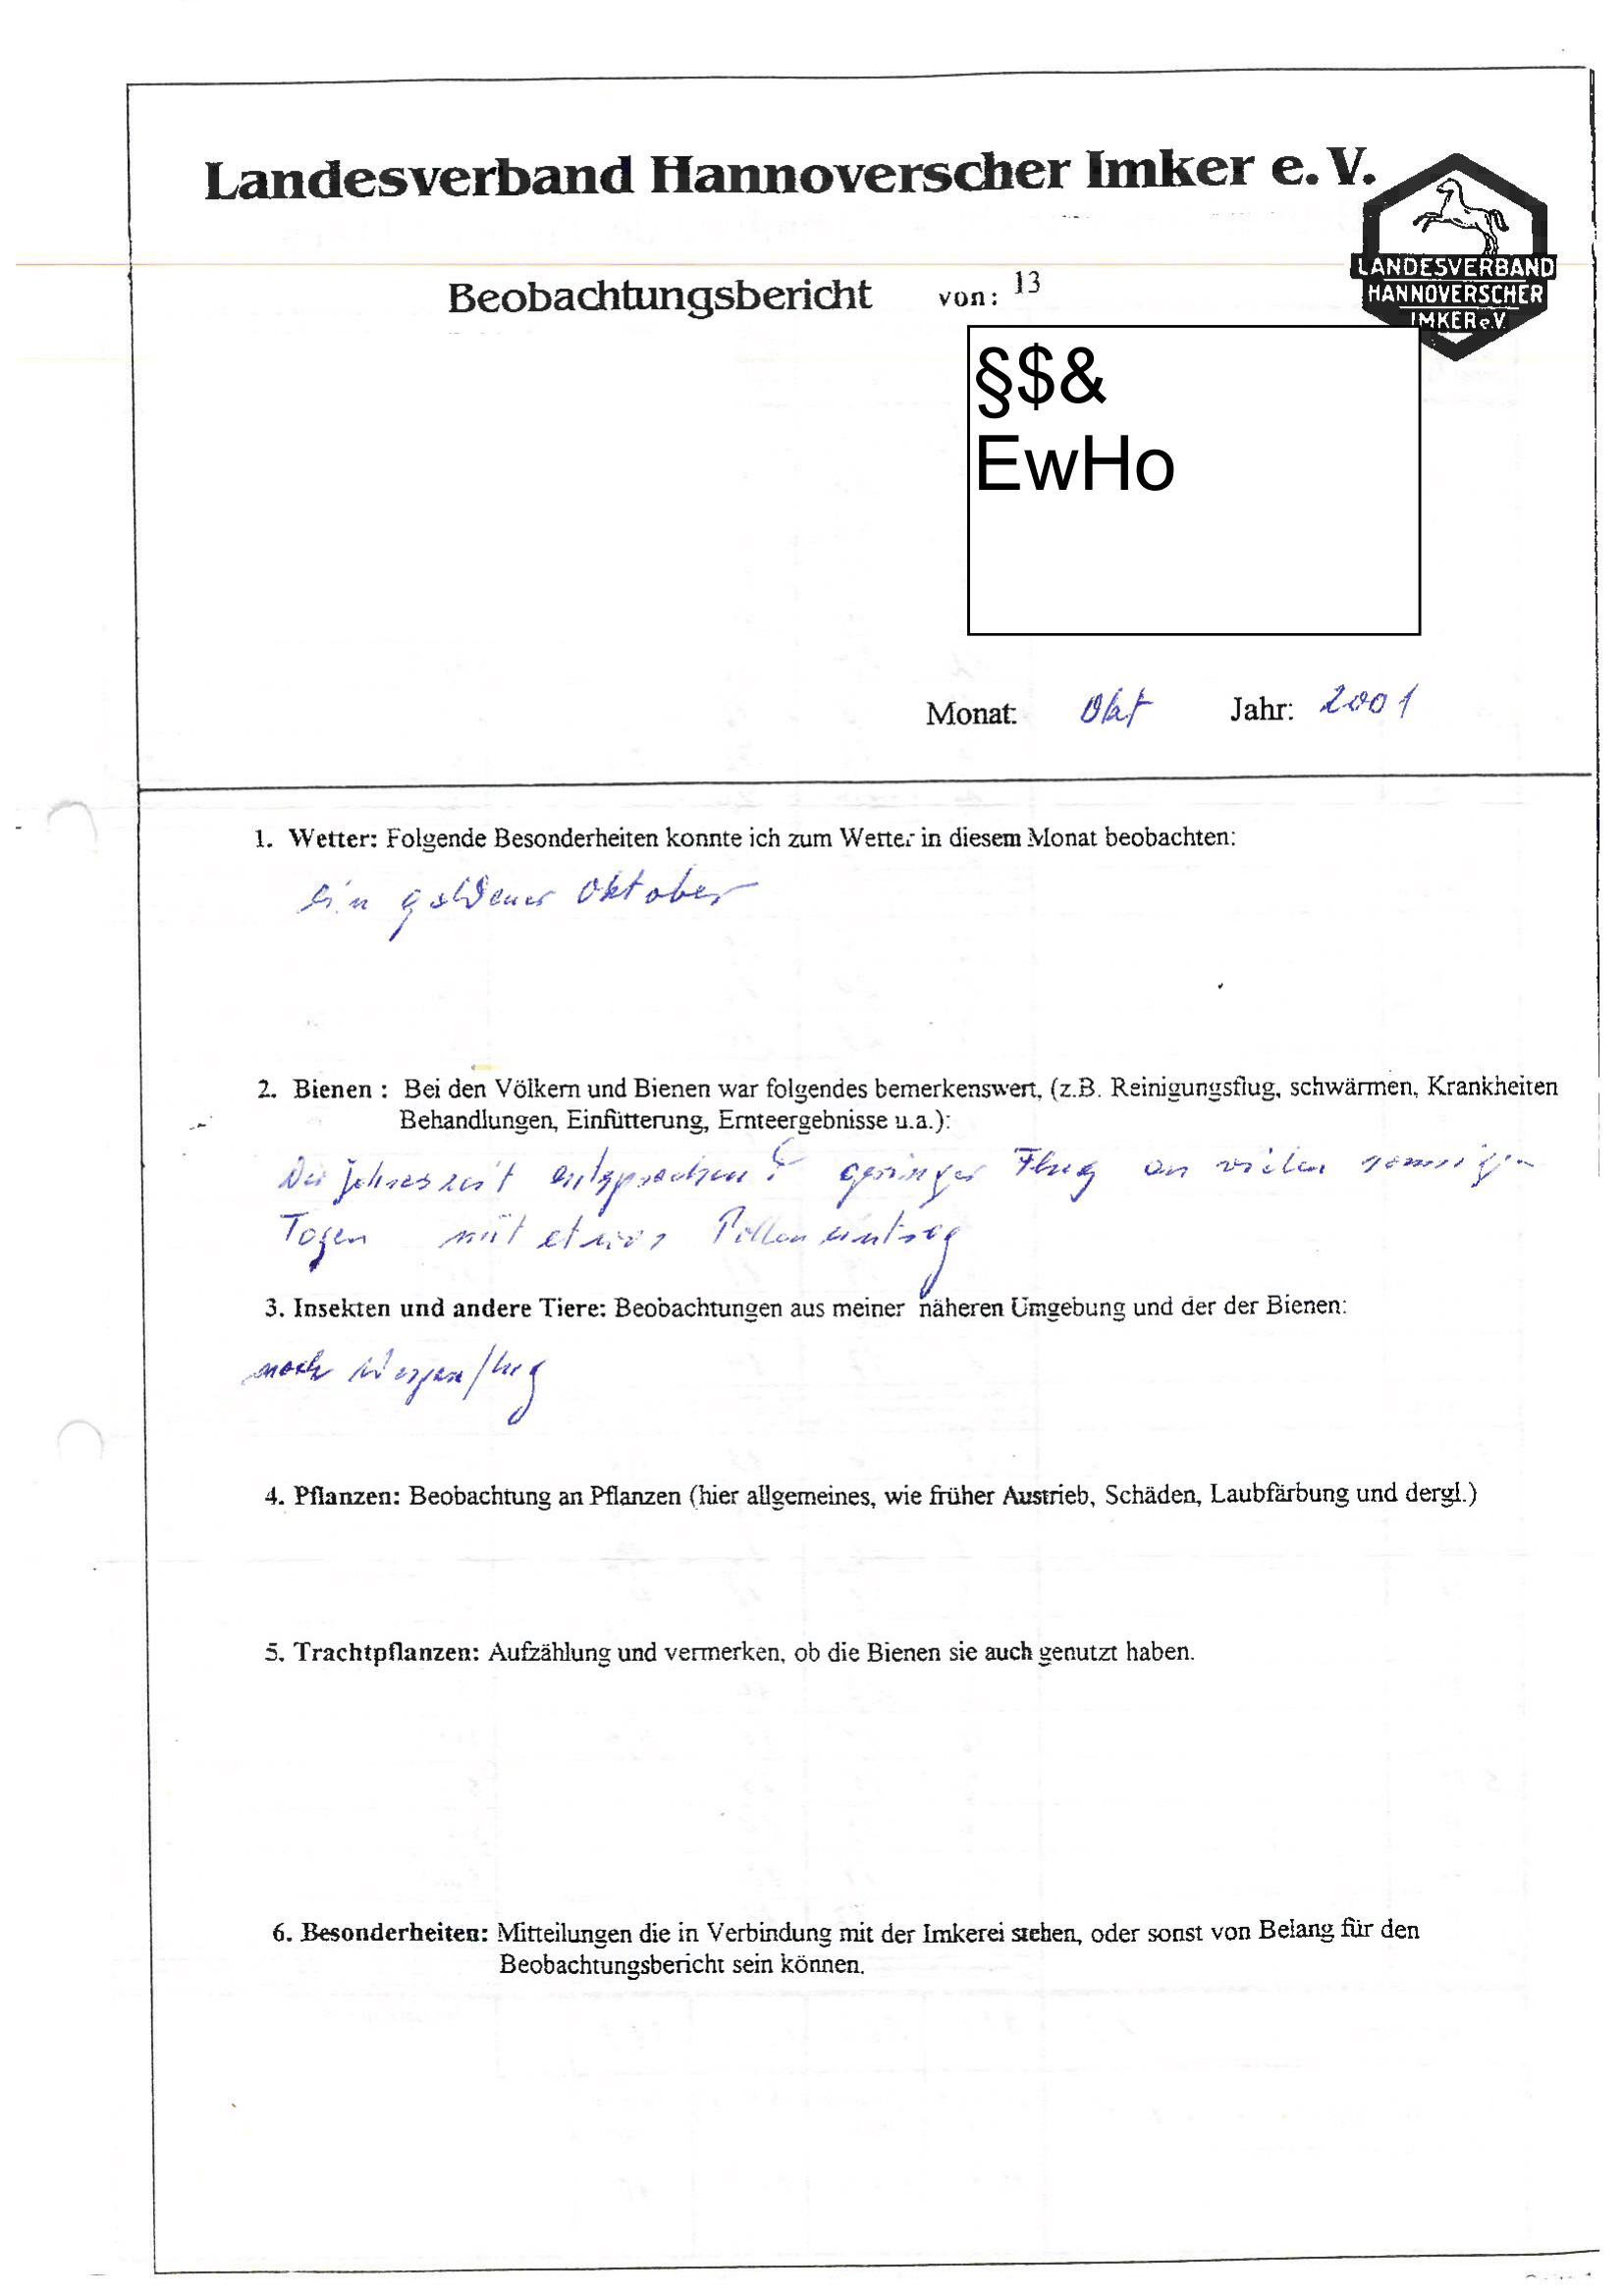 Landesverband Hannoverscher Imker e. V.
LANDESVERBAND
HANNOVERSCHER
IMKER e.V.
Beobachtungsbericht von: 13
§$&
EwHo
Monat: Okt Jahr: 2001
1. Wetter: Folgende Besonderheiten konnte ich zum Wetter in diesem Monat beobachten:
ein goldener Oktober
2. Bienen : Bei den Völkern und Bienen war folgendes bemerkenswert, (z.B. Reinigungsflug, schwärmen, Krankheiten
Behandlungen, Einfütterung, Ernteergebnisse u.a.):
Der Jahreszeit entsprechend geringer Flug an vielen sonnigen
Tagen mit etwas Polleneintrag
3. Insekten und andere Tiere: Beobachtungen aus meiner näheren Umgebung und der der Bienen:
noch Wespenflug
4. Pflanzen: Beobachtung an Pflanzen (hier allgemeines, wie früher Austrieb, Schäden, Laubfärbung und dergl.)
5. Trachtpflanzen: Aufzählung und vermerken, ob die Bienen sie auch genutzt haben.
6. Besonderheiten: Mitteilungen die in Verbindung mit der Imkerei stehen, oder sonst von Belang für den
Beobachtungsbericht sein können.